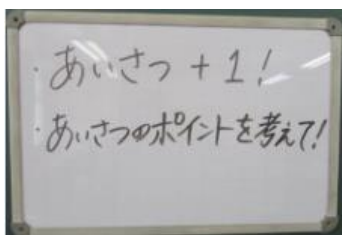 ・あいさつ + 1!
・あいさつのポイントを考えて!